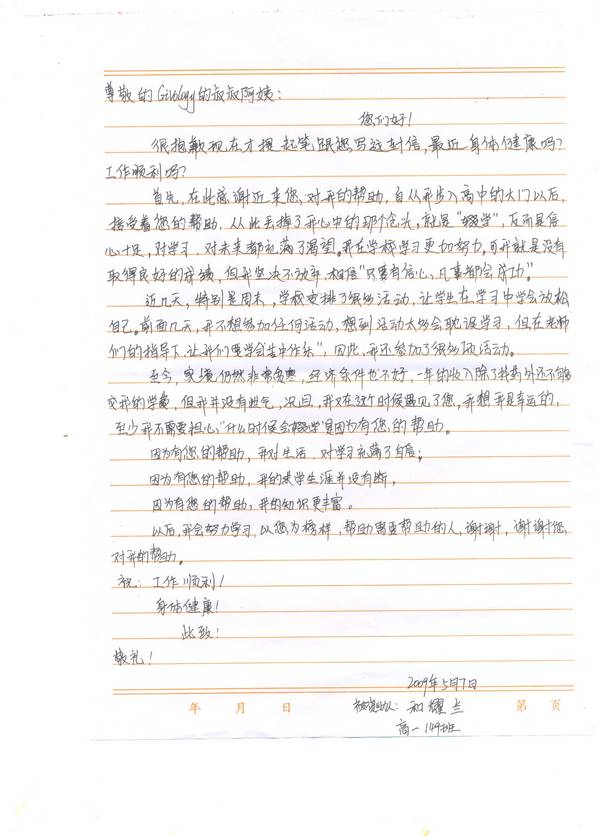 尊敬的Givology的叔叔阿姨：
您们好！
很抱歉现在才提起笔跟您写这封信，最近身体健康吗？
工作顺利吗？
首先，在此感谢近来您对我的帮助，自从我步入高中的大门以后，
接受着您的帮助，从此丢掉了我心中的那个包袱，就是"辍学"，反而是信
心十足，对学习，对未来都充满了渴望。我在学校学习更加努力。可我就是没有
取得良好的成绩，但我坚决不放弃，相信"只要有信心，凡事都会成功"。
近几天，特别是周末，学校安排了很多活动，让学生在学习中学会放松
自己。前面几天，我不想参加任何活动，想到活动太多会耽误学习，但在老师
们的指导下，让我们要学会苦中作乐"，因此，我还参加了很多项活动。
至今，家境仍然非常贫寒，经济条件也不好，一年的收入除了持药外还不够
交我的学费，但我并没有泄气，况且，我又在这个时候遇见了您，我想我是幸运的，
至少我不需要担心"什么时候会辍学"是因为有您的帮助。
因为有您的帮助，我对生活，对学习充满了自信；
因为有您的帮助，我的求学生涯并没有断，
因为有您的帮助，我的知识更丰富。
以后，我会努力学习，以您为榜样，帮助需要帮助的人，谢谢，谢谢您
对我的帮助。
祝：工作顺利！
身体健康！
此致！
敬礼！
2009年5月7日
年 月 日 被资助人：和耀兰 第 页
高一149班